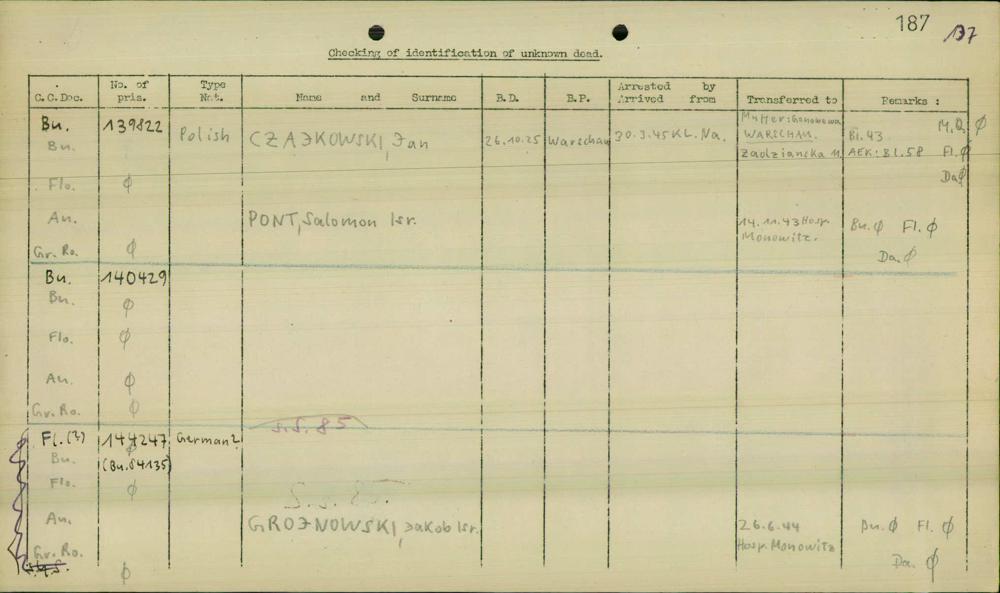 187 137
Checking of identification of unknown dead.
C.C.Doc. No. of pris. Type Nat. Name and Surname B.D. B.P. Arrested by Arrived from Transferred to Remarks :
Bu. 139822 Polish CZAJKOWSKI, Jan 26.10.25 Warschau 30.3.45 KL. Na. WARSCHAU. Bl. 43 M.D. ϕ
Bu. Zadziancka 11. AEK: Bl. 58 Fl. ϕ
Da ϕ
Flo. ϕ
An. PONT, Salomon Isr. 14.11.43 Hosp. Monowitz. Bu. ϕ Fl. ϕ
Gr. Ro. ϕ Da. ϕ
Bu. 140429
Bu. ϕ
Flo. ϕ
An. ϕ
Gr. Ro. ϕ
s.S. 85
Fl. (?) 144247 German?
Bu. ϕ (Bu. 84135)
Flo. ϕ
S.s. 85.
An. GROJNOWSKI, Jakob Isr. 26.6.44 Bu. ϕ Fl. ϕ
Hosp. Monowitz
Gr. Ro. Da. ϕ
ϕ